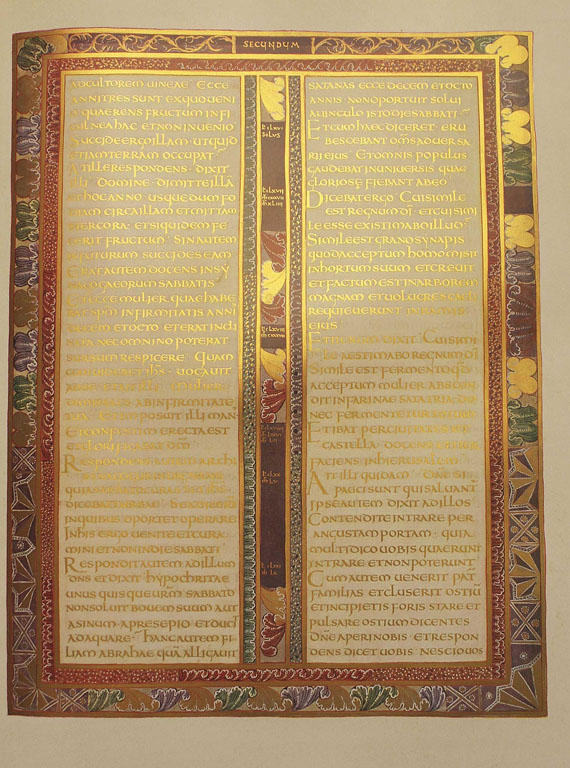 SECUNDUM
AD CULTOREM UINEAE ECCE
ANNI TRES SUNT EX QUO UENI
O QUAERENS FRUCTUM IN FI
CULNEA HAC ET NON INUENIO
SUCCIDE ERGO ILLAM UT QUID
ETIAM TERRAM OCCUPAT
AT ILLE RESPONDENS DIXIT
ILLI DOMINE DIMITTE ILLĀ
ET HOC ANNO USQUE DUM FO
DIAM CIRCA ILLAM ET MITTAM
STERCORA ET SI QUIDEM FE
CERIT FRUCTUM SIN AUTEM
IN FUTURUM SUCCIDES EAM
ERAT AUTEM DOCENS IN SYN
AGOGA EORUM SABBATIS
ET ECCE MULIER QUAE HABE
BAT SPM INFIRMITATIS ANNI
DECEM ET OCTO ET ERAT INCLI
NATA NEC OMNINO POTERAT
SURSUM RESPICERE QUAM
UOCAUIT
MULIER
AB INFIRMITATE
ET IMPOSUIT ILLI MAN
ET CONFESTIM ERECTA EST
ET GLORIFICABAT DM
RESPONDENS ARCHI
QUIA
DICEBAT TURBAE SEX DIES
IN QUIBUS OPORTET OPERARE
IN HIS ERGO UENITE ET CURA
MINI ET NON IN DIE SABBATI
RESPONDIT AUTEM AD ILLUM
DNS ET DIXIT HYPOCHRITAE
UNUS QUISQUE URM SABBATO
NON SOLUIT BOUEM SUUM AUT
ASINUM A PRESEPIO ET DUCIT
ADAQUARE HANC AUTEM FI
LIAM ABRAHAE QUĀ ALLIGAUIT
SATANAS ECCE DECEM ET OCTO
ANNIS NON OPORTUIT SOLUI
A UINCULO ISTO DIE SABBATI
ET CUM HAEC DICERET ERU
BESCEBANT OMS ADUERSA
RII EIUS ET OMNIS POPULUS
GAUDEBAT IN UNIUERSIS QUAE
GLORIOSE FIEBANT AB EO
DICEBAT ERGO CUI SIMILE
EST REGNUM DI ET CUI SIMI
LE ESSE EXISTIMABO ILLUD
SIMILE EST GRANO SYNAPIS
QUOD ACCEPTUM HOMO MISIT
IN HORTUM SUUM ET CREUIT
ET FACTUM EST IN ARBOREM
MAGNAM ET UOLUCRES CAELI
REQUIEUERUNT IN RAMIS
EIUS
ET ITERUM DIXIT CUI SIMI
LE AESTIMABO REGNUM DI
SIMILE EST FERMENTO QD
ACCEPTUM MULIER ABSCON
DIT IN FARINAE SATA TRIA DO
NEC FERMENTETUR TOTUM
ET IBAT PER CIUITATES ET
CASTELLA DOCENS ET ITER
FACIENS IN HIERUSALEM
AIT ILLI QUIDAM DNE SI
PAUCI SUNT QUI SALUANT
IPSE AUTEM DIXIT AD ILLOS
CONTENDITE INTRARE PER
ANGUSTAM PORTAM QUIA
MULTI DICO UOBIS QUAERUNT
INTRARE ET NON POTERUNT
CUM AUTEM UENERIT PAT
FAMILIAS ET CLUSERIT OSTIŪ
ET INCIPIETIS FORIS STARE ET
PULSARE OSTIUM DICENTES
DNE APERI NOBIS ET RESPON
DENS DICET UOBIS NESCIO UOS